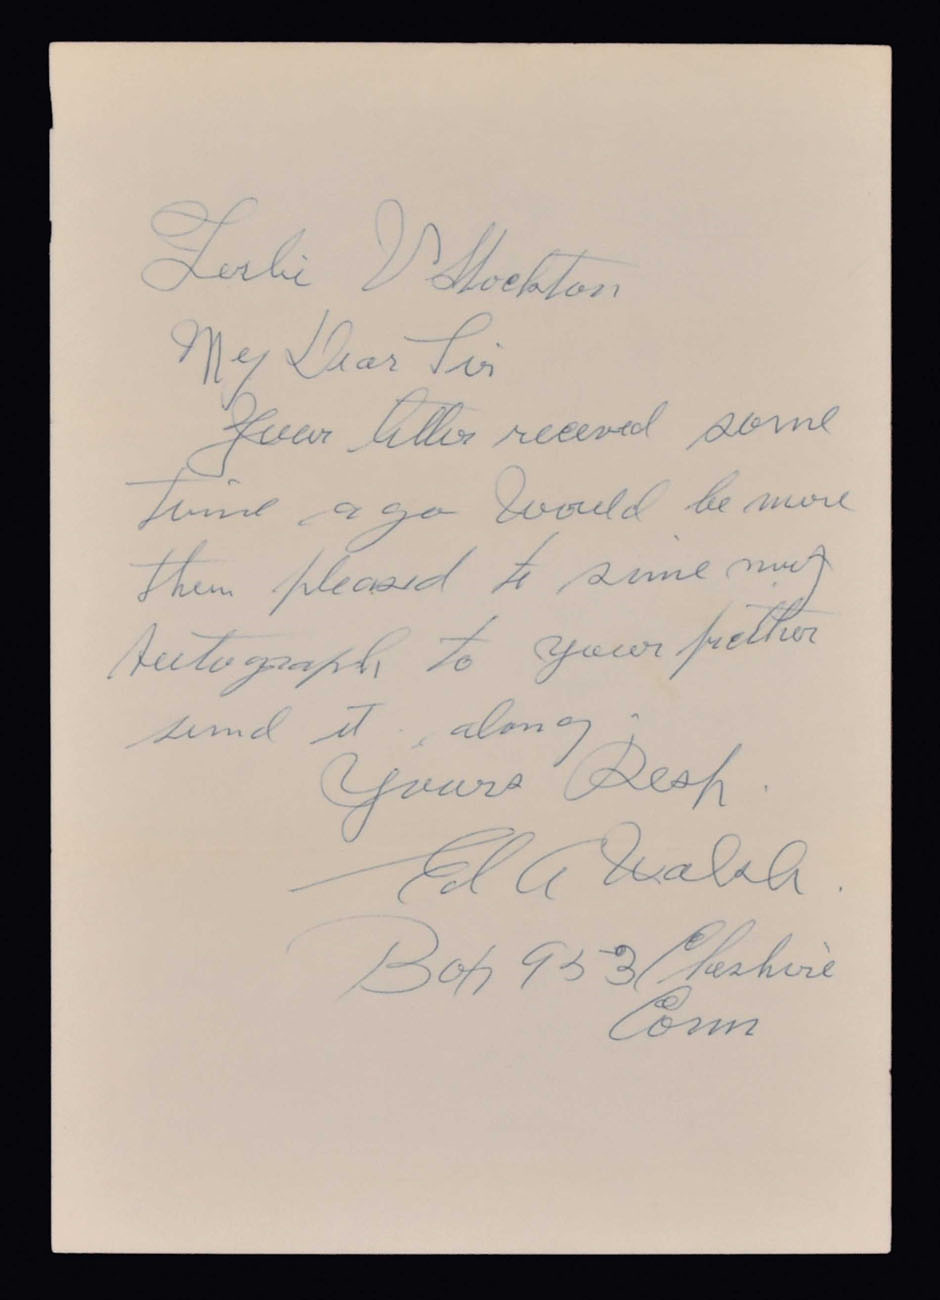 Leslie V Stockton
My Dear Sir
Your letter received some
time ago Would be more
then pleased to sine my
Autograph to your picther
send it along.
Yours Resp.
Ed A Walsh.
Box 953 Cheshire
Conn